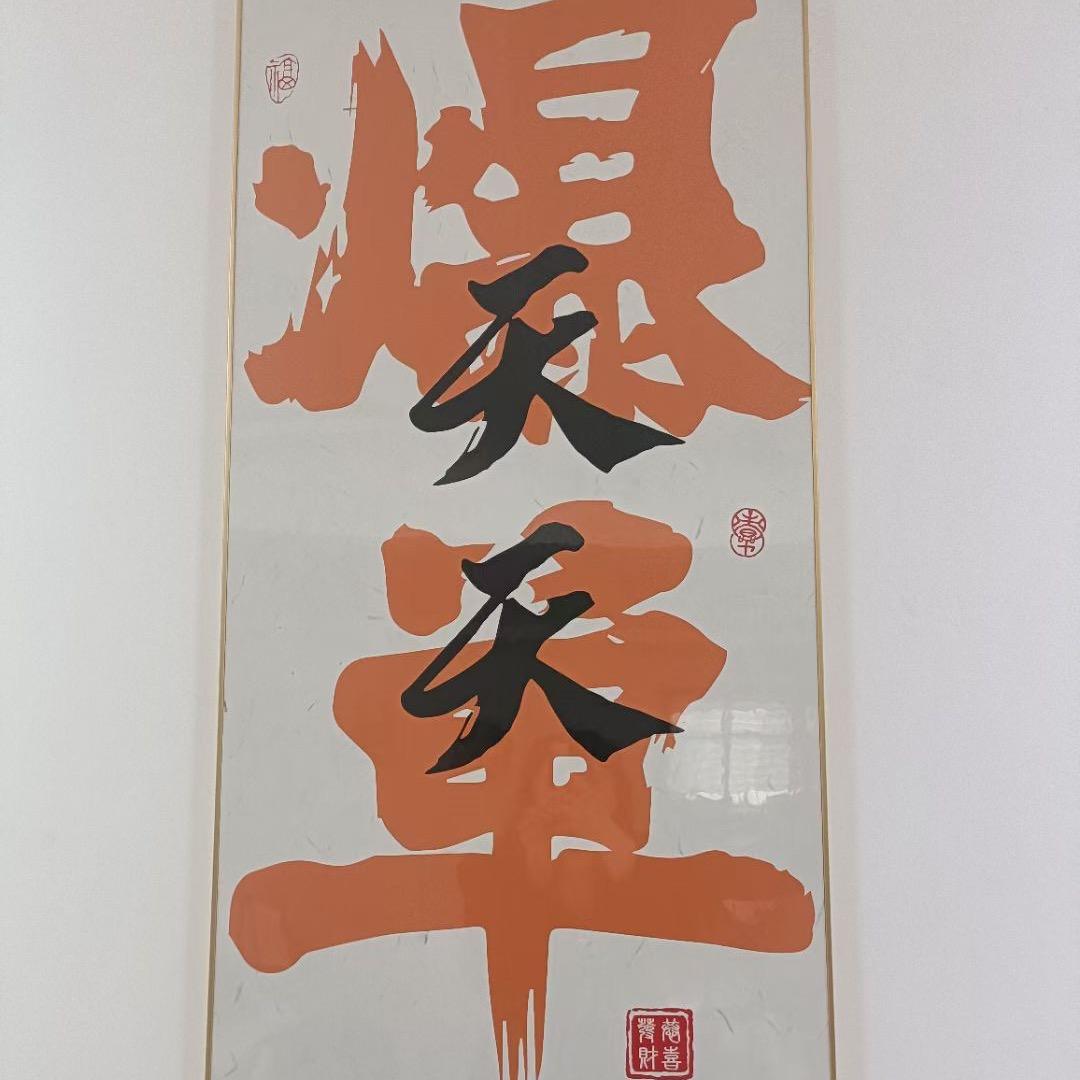 福
天天
爆单
恭喜
發財